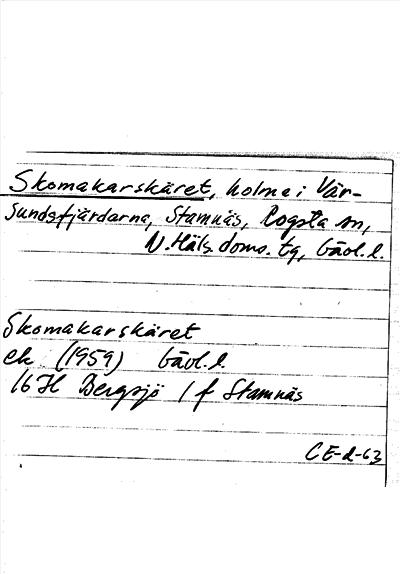 Skomakarskäret, holme i Vär-
Sundsfjärdarna, Stamnäs, Rogsta sn,
N. Häls. doms. tg, Gävl. l.
Skomakarskäret
ek (1959) Gävl. l.
16H Bergsjö 1 f Stamnäs
CE-d-63